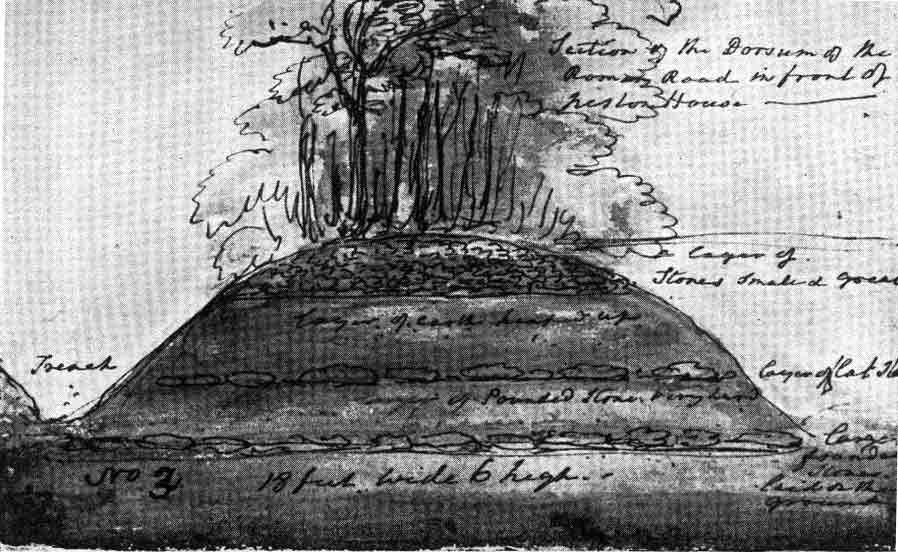 Section of the Dorsum of the
Roman Road in front of
Preston House
a layer of
Stones small & great
layer of earth heaped up
Trench
layer of flat St
of Pounded Stone very hard
large
foundation
Stones
laid on the
ground
No 3
18 feet wide 6 high.